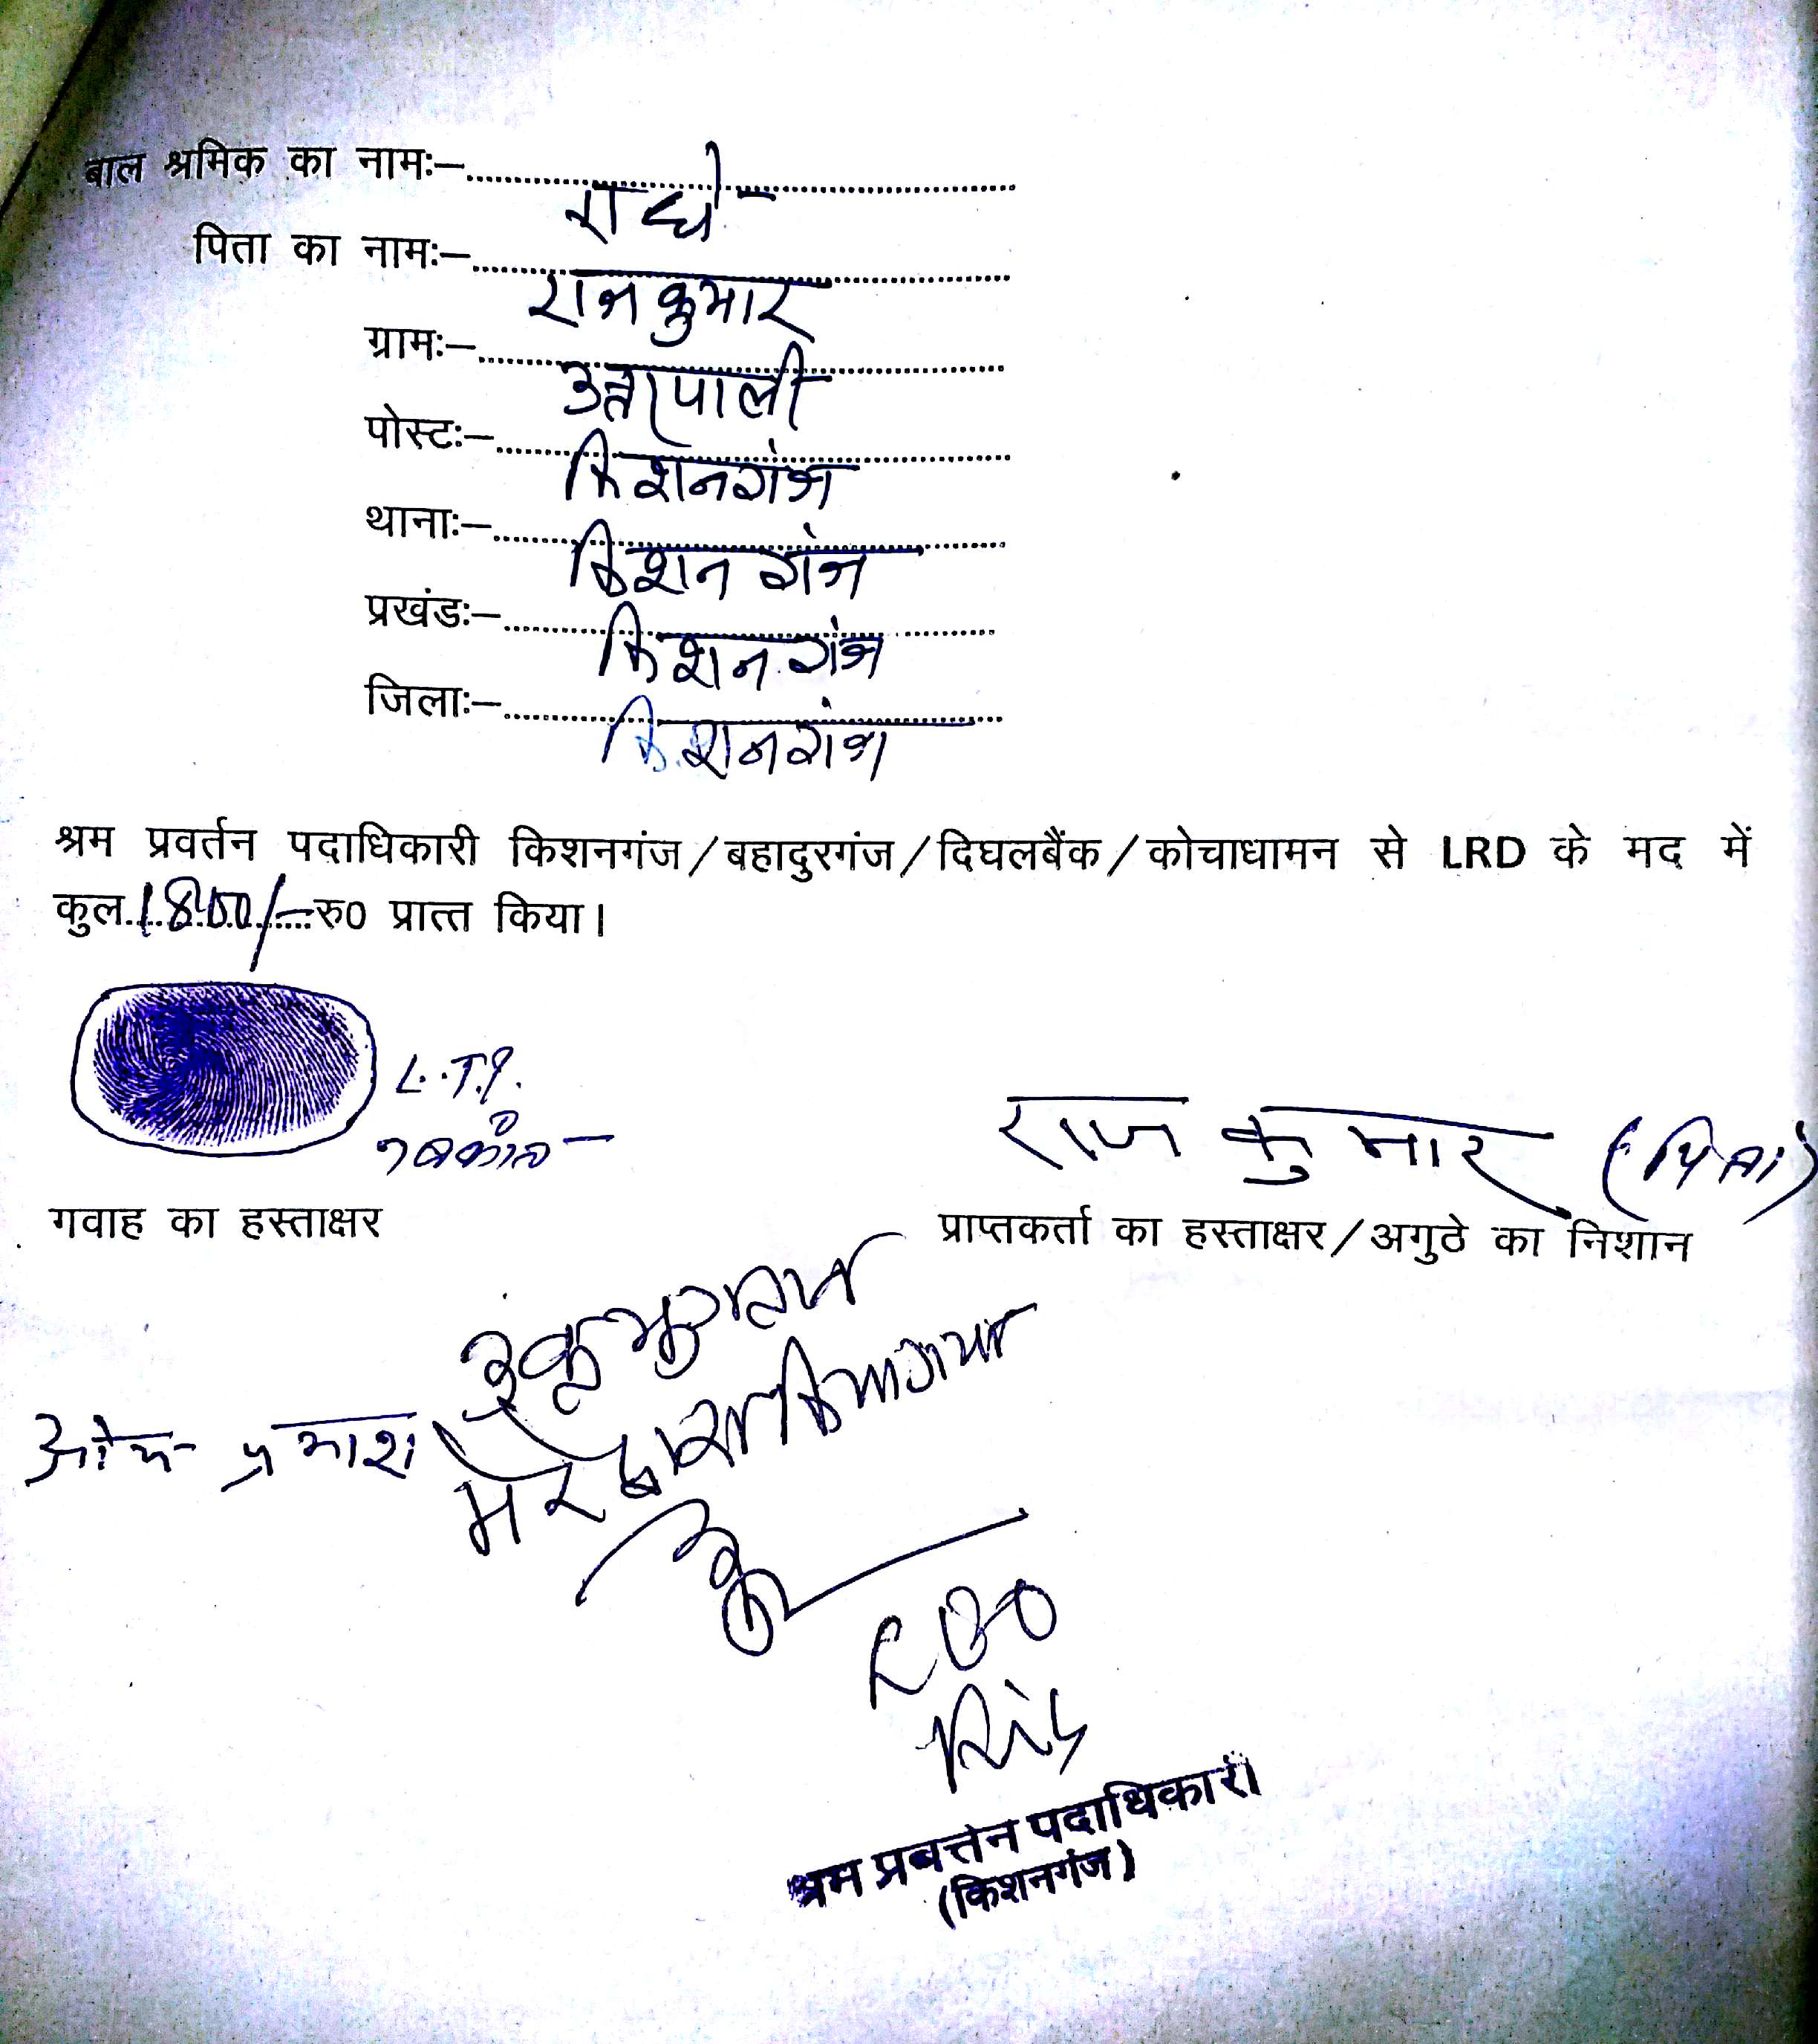 बाल श्रमिक का नामः– राधे
पिता का नामः– राजकुमार
ग्रामः– उत्तरपाली
पोस्टः– किशनगंज
थानाः– किशनगंज
प्रखंडः– किशनगंज
जिलाः– किशनगंज
श्रम प्रवर्तन पदाधिकारी किशनगंज/बहादुरगंज/दिघलबैंक/कोचाधामन से LRD के मद में
कुल 1800/– रु0 प्रात्त किया।
L.T.I.
राज कुमार (पिता)
गवाह का हस्ताक्षर प्राप्तकर्ता का हस्ताक्षर/अगुठे का निशान
ओम प्रकाश
मेरे द्वारा किया गया
श्रम प्रवर्त्तन पदाधिकारी
(किशनगंज)